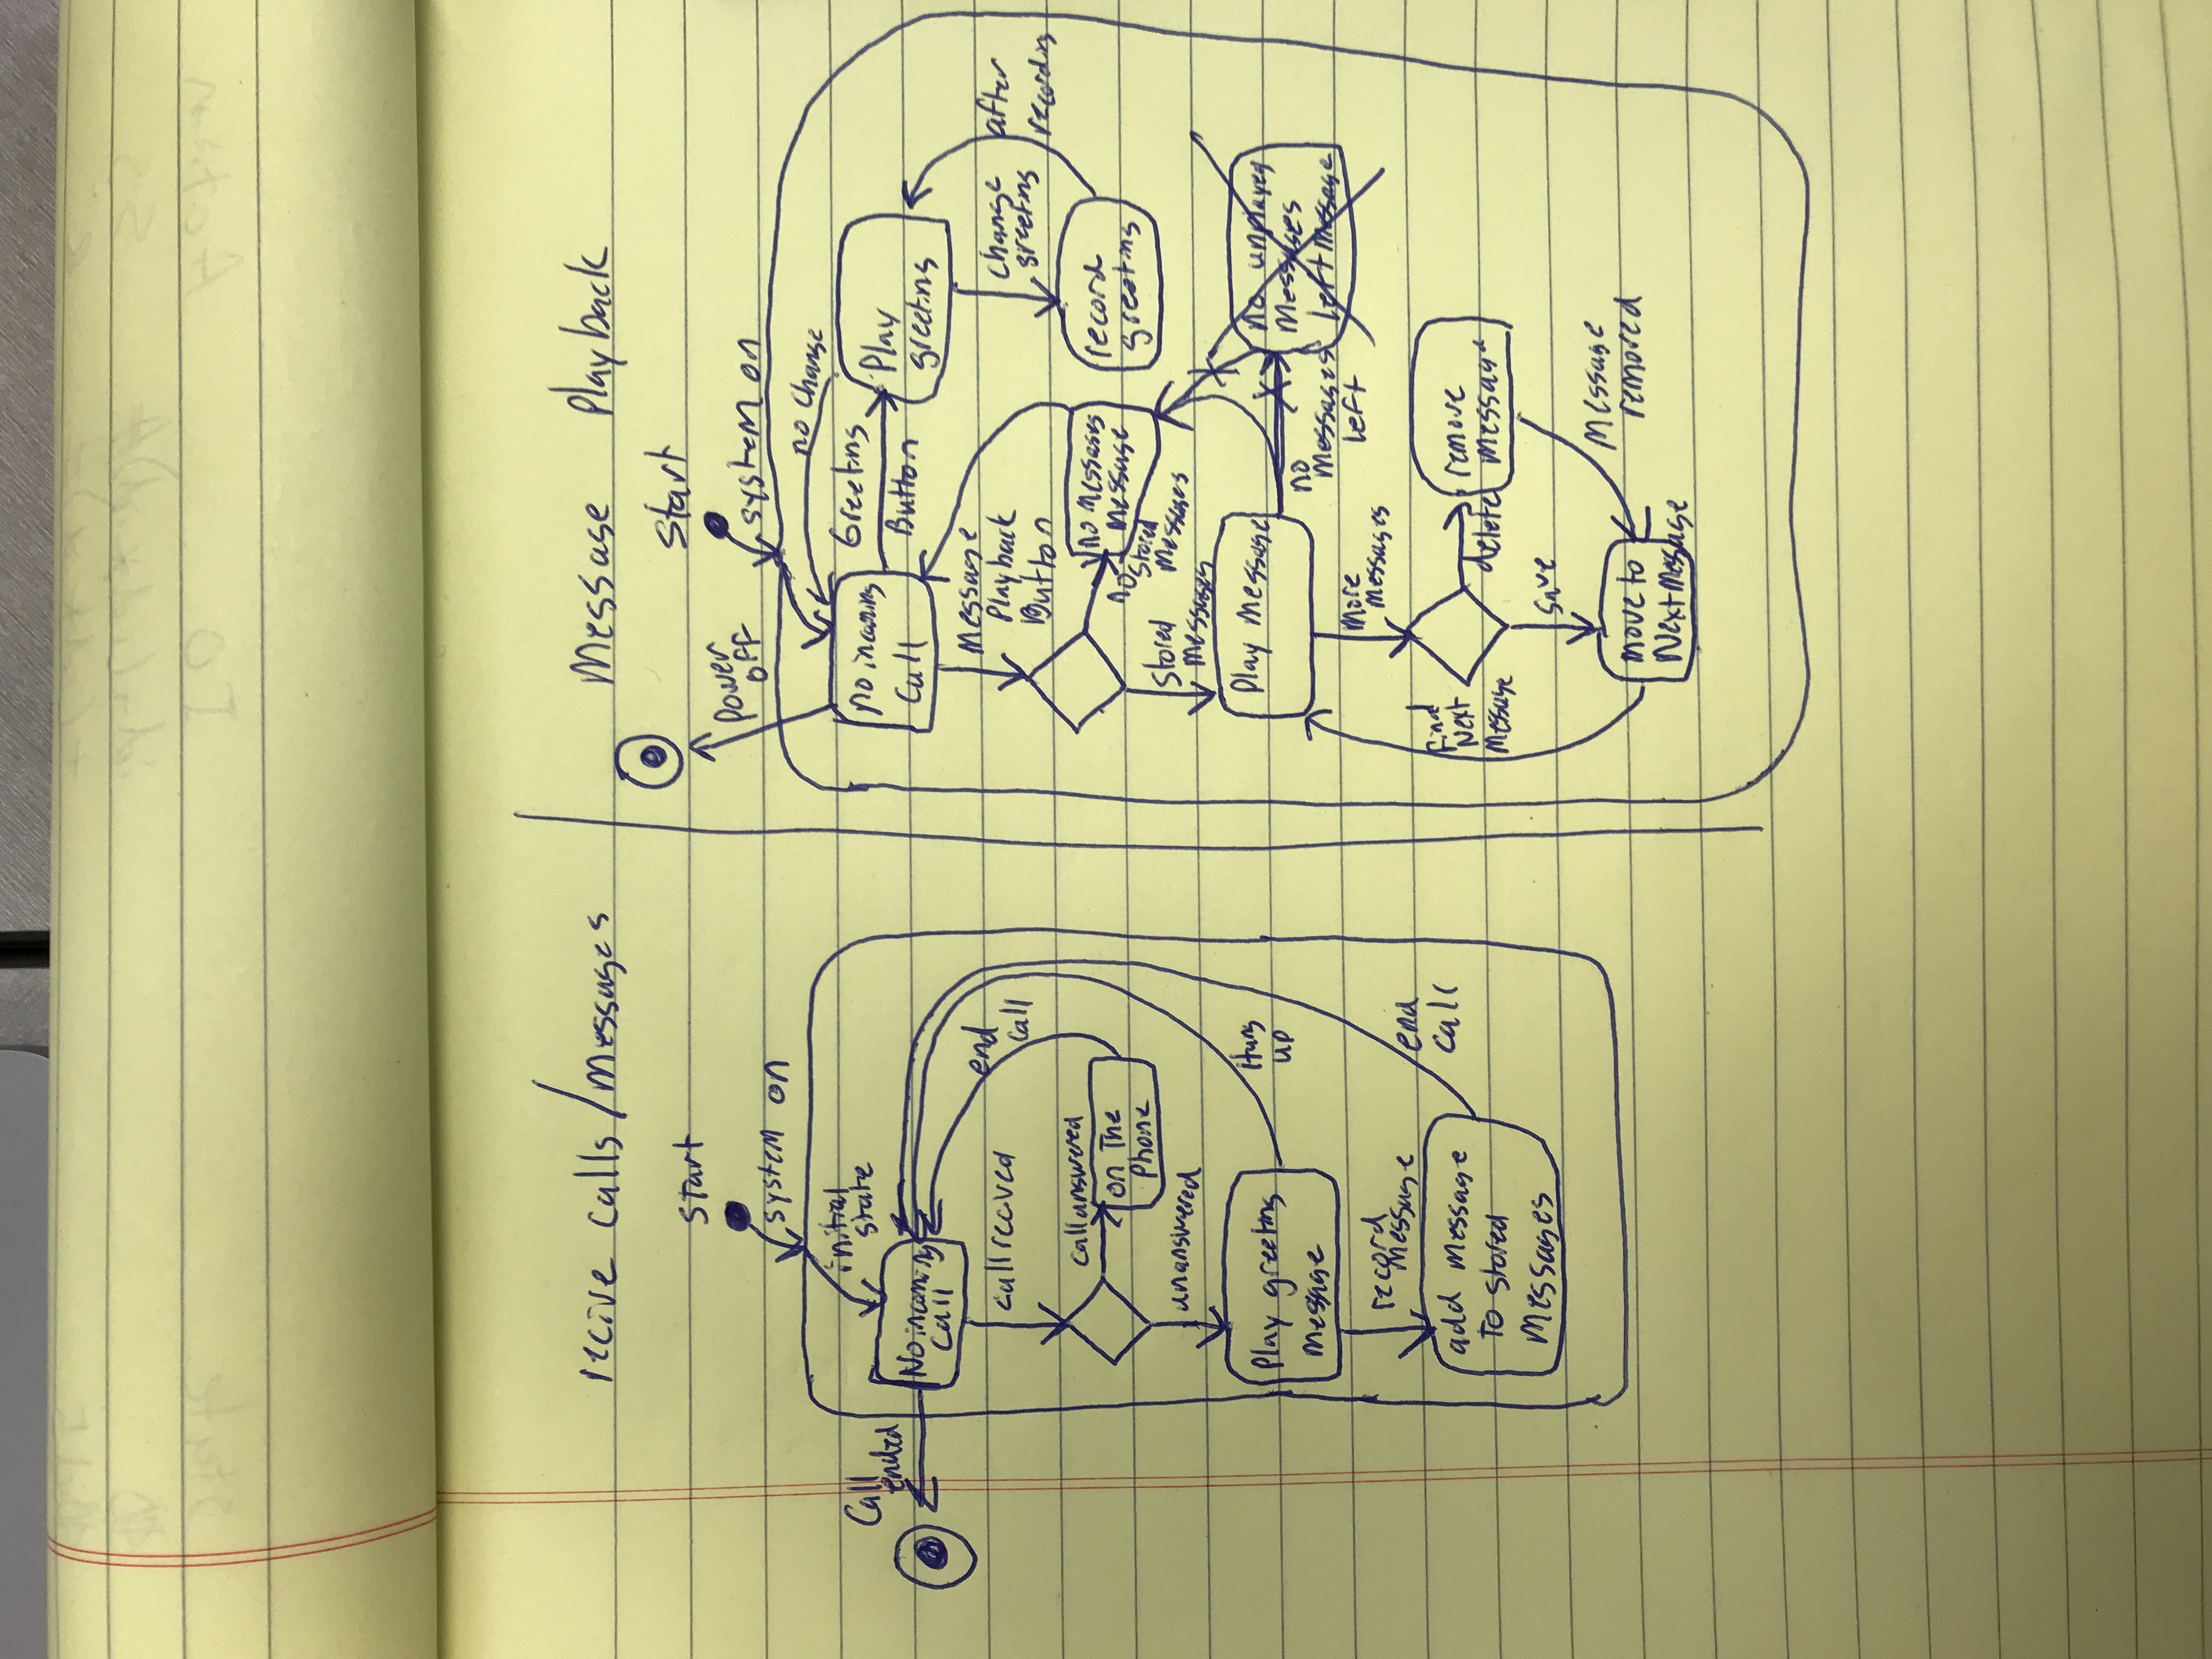 recive calls/messages
start
system on
initial
state
Call
ended
No incoming
Call
call recived
end
call
call answered
on The
Phone
unanswered
Play greeting
message
Hung
up
record
message
end
call
add message
To stored
Messages
Message Playback
Start
Power
off
system on
no change
no incoming
Call
Greeting
Button
Play
greeting
Message
Playback
Button
change
greeting
after
recording
no messages
message
record
greeting
no
stored
messages
Stored
messages
Play message
no
messages
left
no unplayed
messages
left message
more
messages
find
Next
Message
delete
remove
message
save
Message
removed
move to
Next message